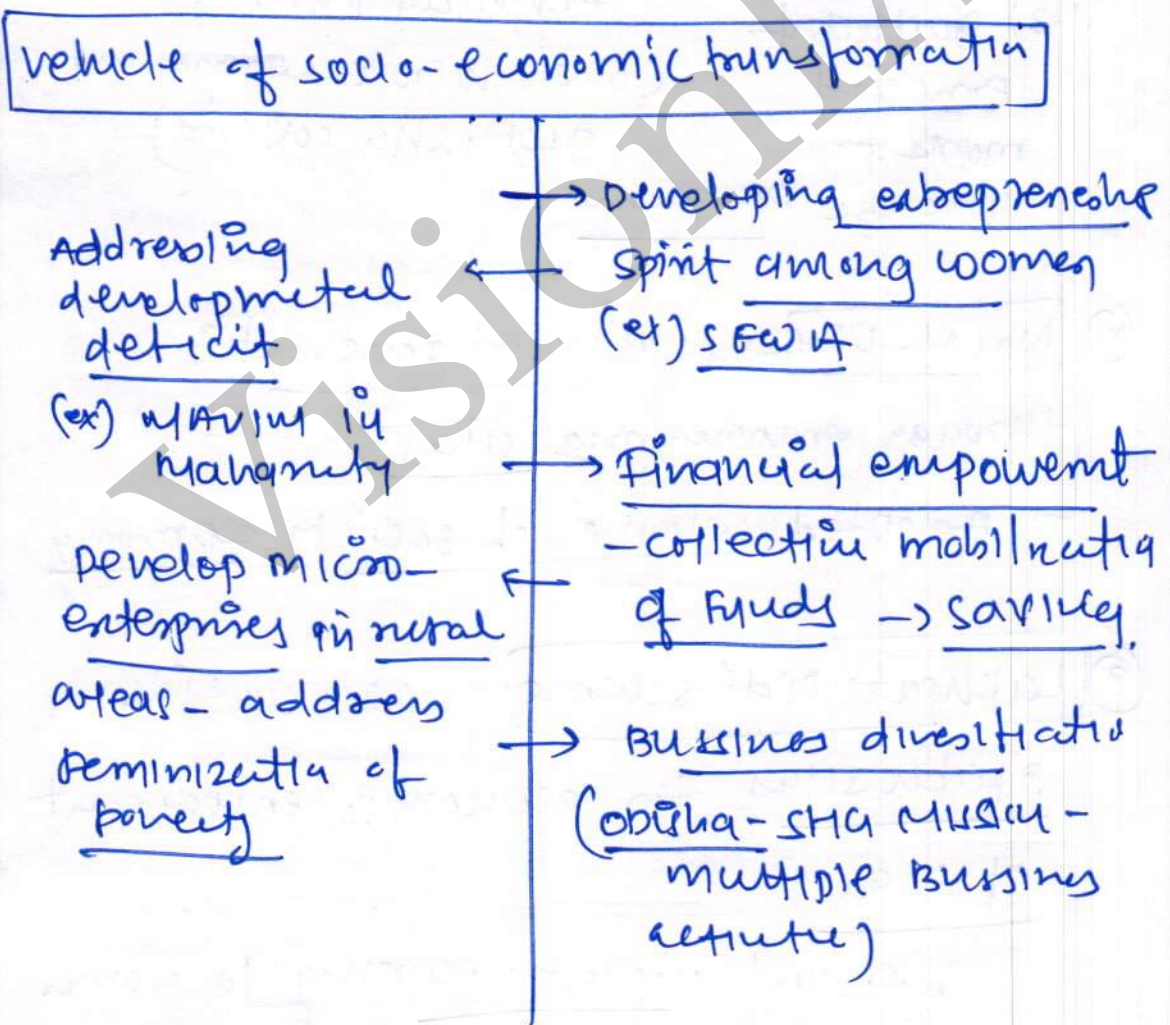 vehicle of socio-economic transformatin
→ Developing entrepreneshp
spirit among women
(ex) SEWA
Addressing
developmetal
deficit
(ex) MAVIM in
→ Financial empowermt
- collective mobilizatin
of Funds -> savings.
Develop micro-
enterprises in rural
areas - address
Feminizatin of
poverty
→ Bussines diversificatin
(odisha - SHG Missin -
multiple Bussines
activitie)
Vision